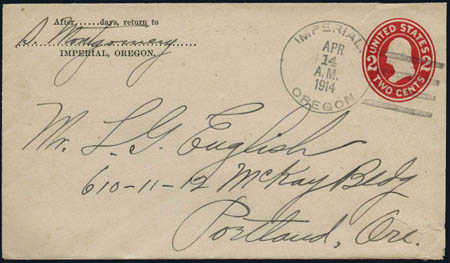 After......days, return to
S. Montgomery
IMPERIAL, OREGON.
IMPERIAL,
APR
14
A.M.
1914
OREGON
UNITED STATES
2 2
TWO CENTS
Mr. L. G. English
610-11-12 McKay Bldg
Portland, Ore.